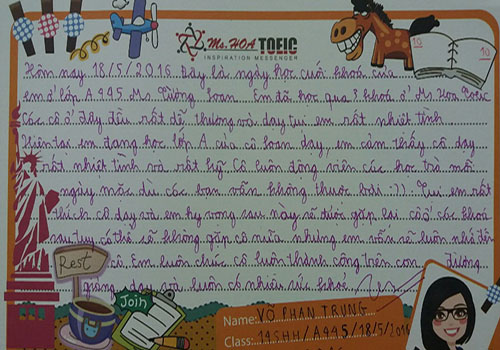 Ms. HOA TOEIC
INSPIRATION MESSENGER
10
10
Hôm nay 18/5/2016. Đây là ngày học cuối khoá của
em ở lớp A995 Ms Tường Loan. Em đã học qua 3 khoá ở Ms Hoa Toeic
Các cô ở đây đều rất dễ thương và dạy tụi em rất nhiệt tình
Hiện tại em đang học lớp A của cô Loan dạy, em cảm thấy cô dạy
rất nhiệt tình và rất kỹ. Cô luôn động viên các học trò mỗi
ngày mặc dù các bạn vẫn không thuộc bài :)). Tụi em rất
thích cô dạy và em hy vọng sau này sẽ được gặp lại cô ở các khoá
sau tuy có thể sẽ không gặp cô nữa nhưng em vẫn sẽ luôn nhớ đến
cô. Em luôn chúc cô luôn thành công trên con đường
giảng dạy và luôn có nhiều sức khoẻ.
Rest
Join
Name: VÕ PHAN TRUNG
Class: /A995/18/5/2016